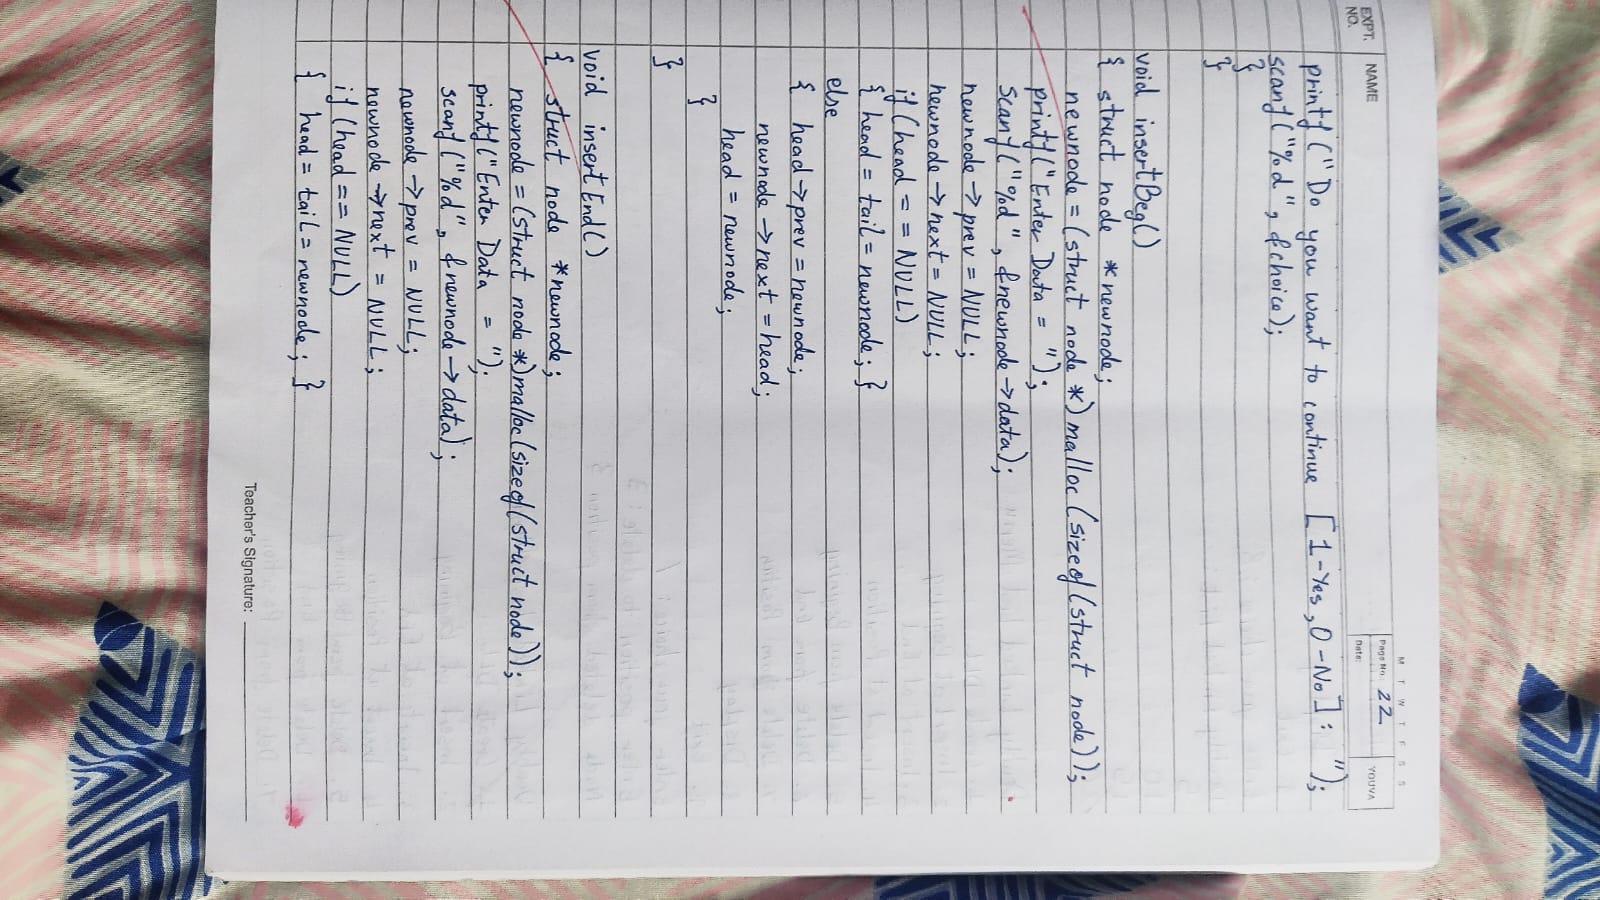 M T W T F S S
EXPT. NO.
NAME
Page No.: 22
Date:
YOUVA
printf ("Do you want to continue [1-Yes, 0-No]: ");
scanf("%d", &choice);
}
}
void insertBeg()
{ struct node *newnode;
newnode = (struct node *) malloc (sizeof (struct node));
printf("Enter Data = ");
Scanf("%d", &newnode->data);
newnode -> prev = NULL;
newnode -> next = NULL;
if (head = = NULL)
{ head = tail = newnode; }
else
{ head->prev = newnode;
newnode -> next = head;
head = newnode;
}
}
void insertEnd()
{ struct node *newnode;
newnode = (struct node *)malloc(sizeof(struct node));
printf("Enter Data = ");
scanf ("%d", &newnode -> data);
newnode -> prev = NULL;
newnode -> next = NULL;
if (head == NULL)
{ head = tail = newnode; }
Teacher's Signature: